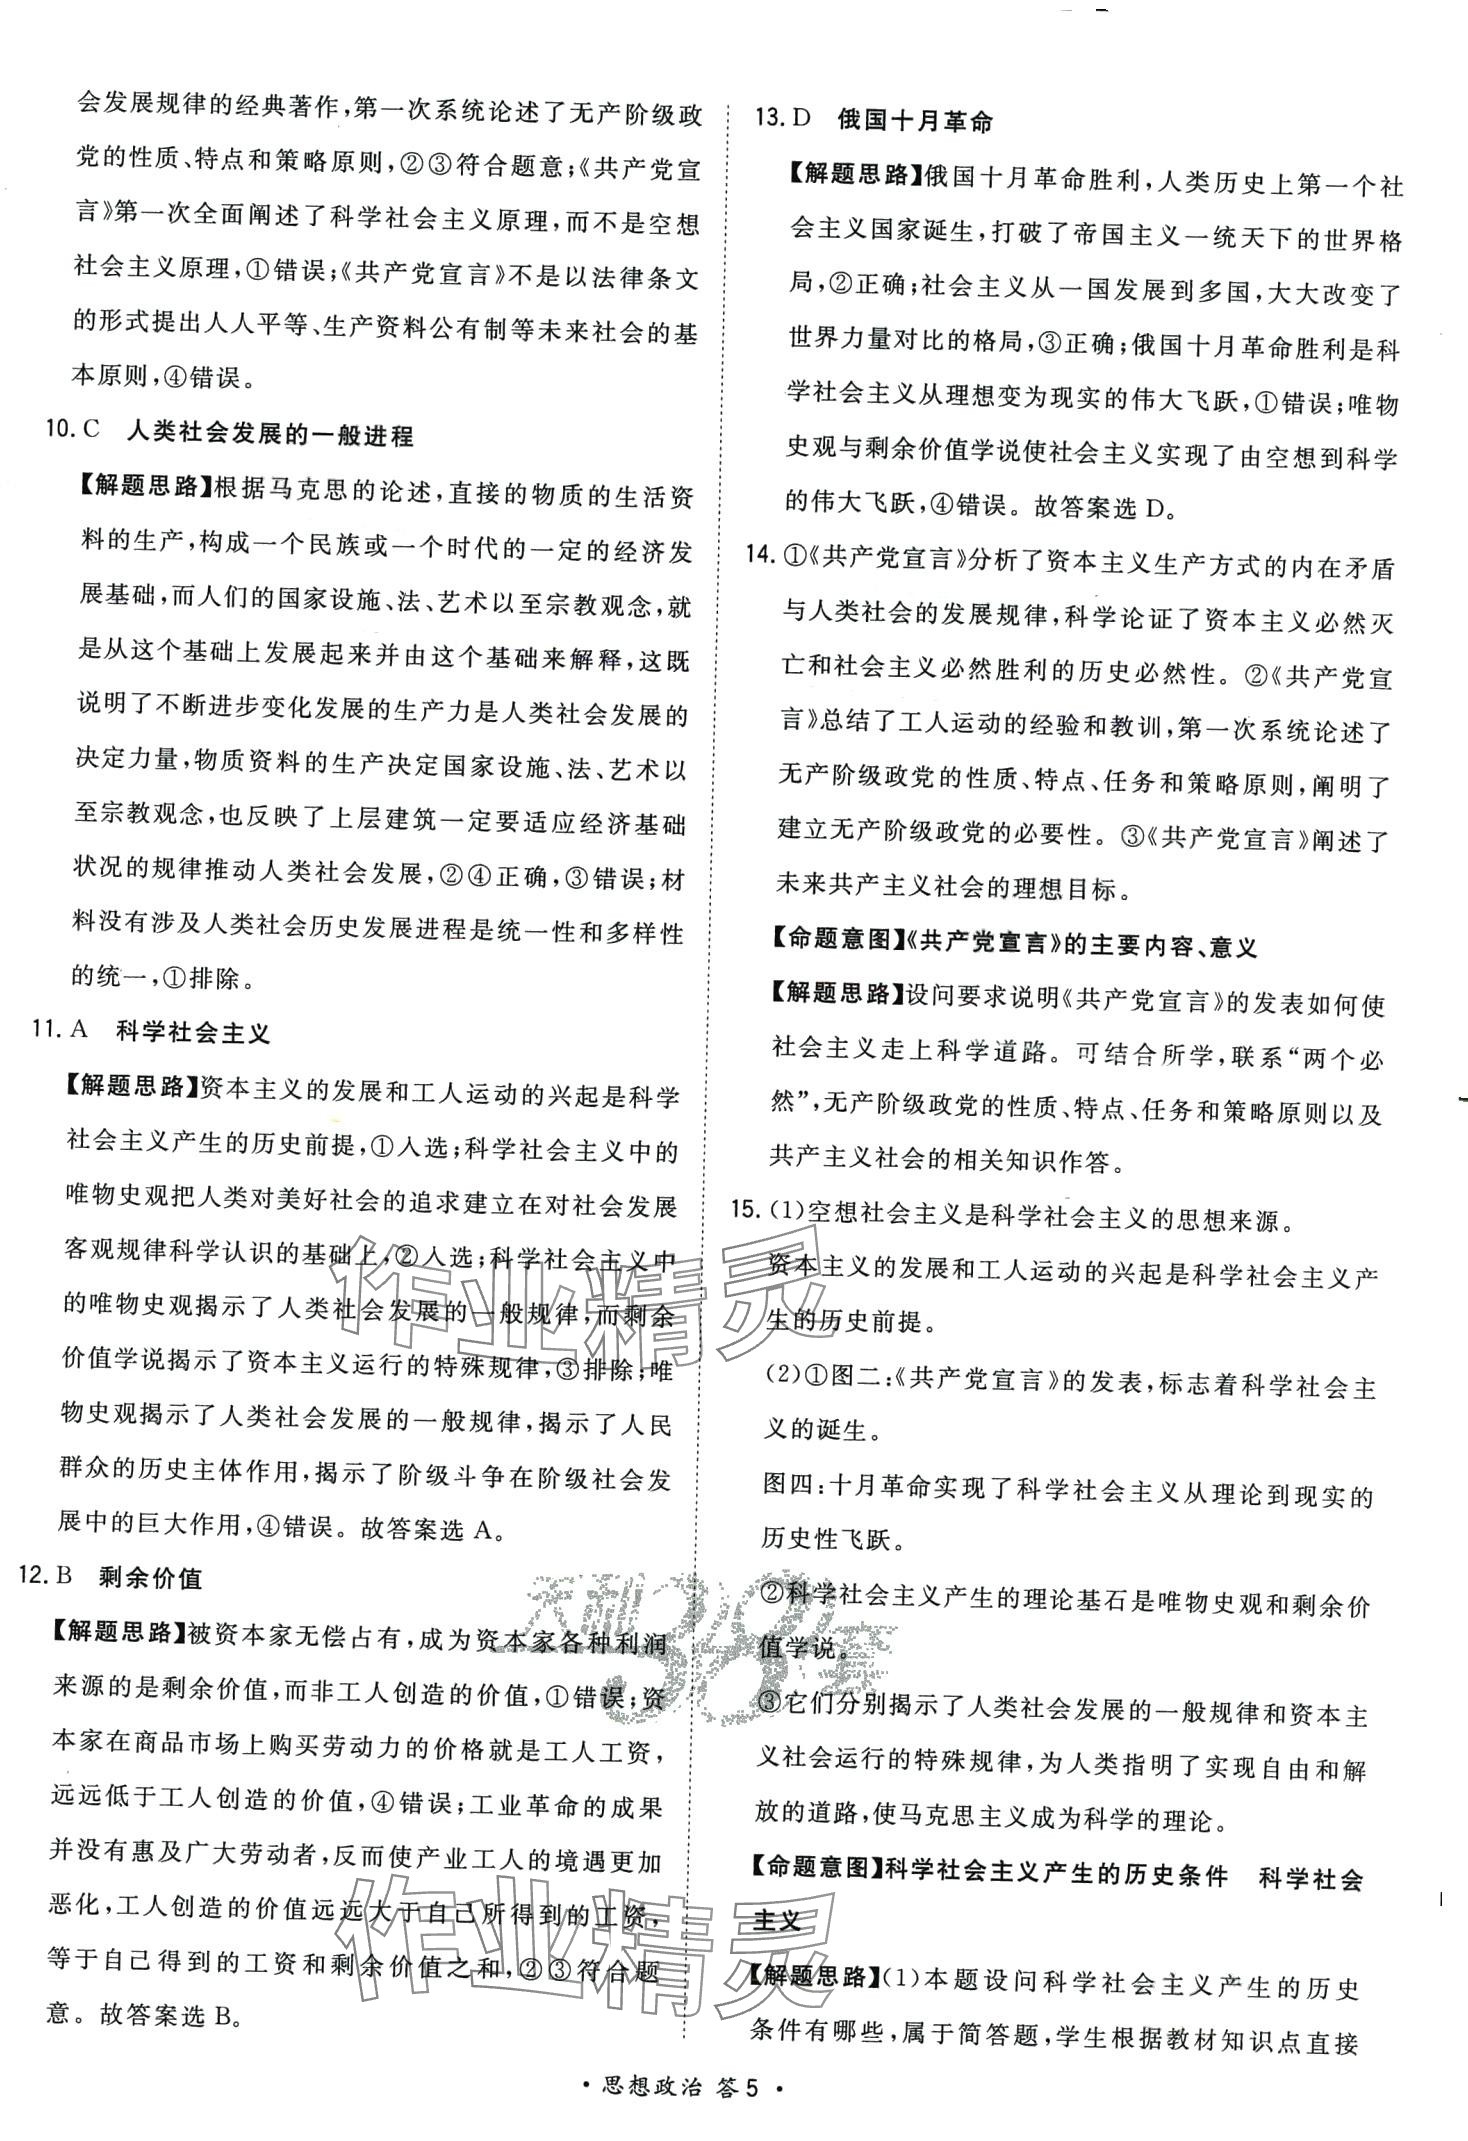 会发展规律的经典著作,第一次系统论述了无产阶级政
党的性质、特点和策略原则,②③符合题意;《共产党宣
言》第一次全面阐述了科学社会主义原理,而不是空想
社会主义原理,①错误;《共产党宣言》不是以法律条文
的形式提出人人平等、生产资料公有制等未来社会的基
本原则,④错误。
10. C 人类社会发展的一般进程
【解题思路】根据马克思的论述,直接的物质的生活资
料的生产,构成一个民族或一个时代的一定的经济发
展基础,而人们的国家设施、法、艺术以至宗教观念,就
是从这个基础上发展起来并由这个基础来解释,这既
说明了不断进步变化发展的生产力是人类社会发展的
决定力量,物质资料的生产决定国家设施、法、艺术以
至宗教观念,也反映了上层建筑一定要适应经济基础
状况的规律推动人类社会发展,②④正确,③错误;材
料没有涉及人类社会历史发展进程是统一性和多样性
的统一,①排除。
11. A 科学社会主义
【解题思路】资本主义的发展和工人运动的兴起是科学
社会主义产生的历史前提,①入选;科学社会主义中的
唯物史观把人类对美好社会的追求建立在对社会发展
客观规律科学认识的基础上,②入选;科学社会主义中
的唯物史观揭示了人类社会发展的一般规律,而剩余
价值学说揭示了资本主义运行的特殊规律,③排除;唯
物史观揭示了人类社会发展的一般规律,揭示了人民
群众的历史主体作用,揭示了阶级斗争在阶级社会发
展中的巨大作用,④错误。故答案选 A。
12. B 剩余价值
【解题思路】被资本家无偿占有,成为资本家各种利润
来源的是剩余价值,而非工人创造的价值,①错误;资
本家在商品市场上购买劳动力的价格就是工人工资,
远远低于工人创造的价值,④错误;工业革命的成果
并没有惠及广大劳动者,反而使产业工人的境遇更加
恶化,工人创造的价值远远大于自己所得到的工资,
等于自己得到的工资和剩余价值之和,②③符合题
意。故答案选 B。
13. D 俄国十月革命
【解题思路】俄国十月革命胜利,人类历史上第一个社
会主义国家诞生,打破了帝国主义一统天下的世界格
局,②正确;社会主义从一国发展到多国,大大改变了
世界力量对比的格局,③正确;俄国十月革命胜利是科
学社会主义从理想变为现实的伟大飞跃,①错误;唯物
史观与剩余价值学说使社会主义实现了由空想到科学
的伟大飞跃,④错误。故答案选 D。
14. ①《共产党宣言》分析了资本主义生产方式的内在矛盾
与人类社会的发展规律,科学论证了资本主义必然灭
亡和社会主义必然胜利的历史必然性。②《共产党宣
言》总结了工人运动的经验和教训,第一次系统论述了
无产阶级政党的性质、特点、任务和策略原则,阐明了
建立无产阶级政党的必要性。③《共产党宣言》阐述了
未来共产主义社会的理想目标。
【命题意图】《共产党宣言》的主要内容、意义
【解题思路】设问要求说明《共产党宣言》的发表如何使
社会主义走上科学道路。可结合所学,联系“两个必
然”,无产阶级政党的性质、特点、任务和策略原则以及
共产主义社会的相关知识作答。
15. (1)空想社会主义是科学社会主义的思想来源。
资本主义的发展和工人运动的兴起是科学社会主义产
生的历史前提。
(2)①图二:《共产党宣言》的发表,标志着科学社会主
义的诞生。
图四:十月革命实现了科学社会主义从理论到现实的
历史性飞跃。
②科学社会主义产生的理论基石是唯物史观和剩余价
值学说。
③它们分别揭示了人类社会发展的一般规律和资本主
义社会运行的特殊规律,为人类指明了实现自由和解
放的道路,使马克思主义成为科学的理论。
【命题意图】科学社会主义产生的历史条件 科学社会
主义
【解题思路】(1)本题设问科学社会主义产生的历史
条件有哪些,属于简答题,学生根据教材知识点直接
作业精灵
天利38套
作业精灵
· 思想政治 答 5 ·